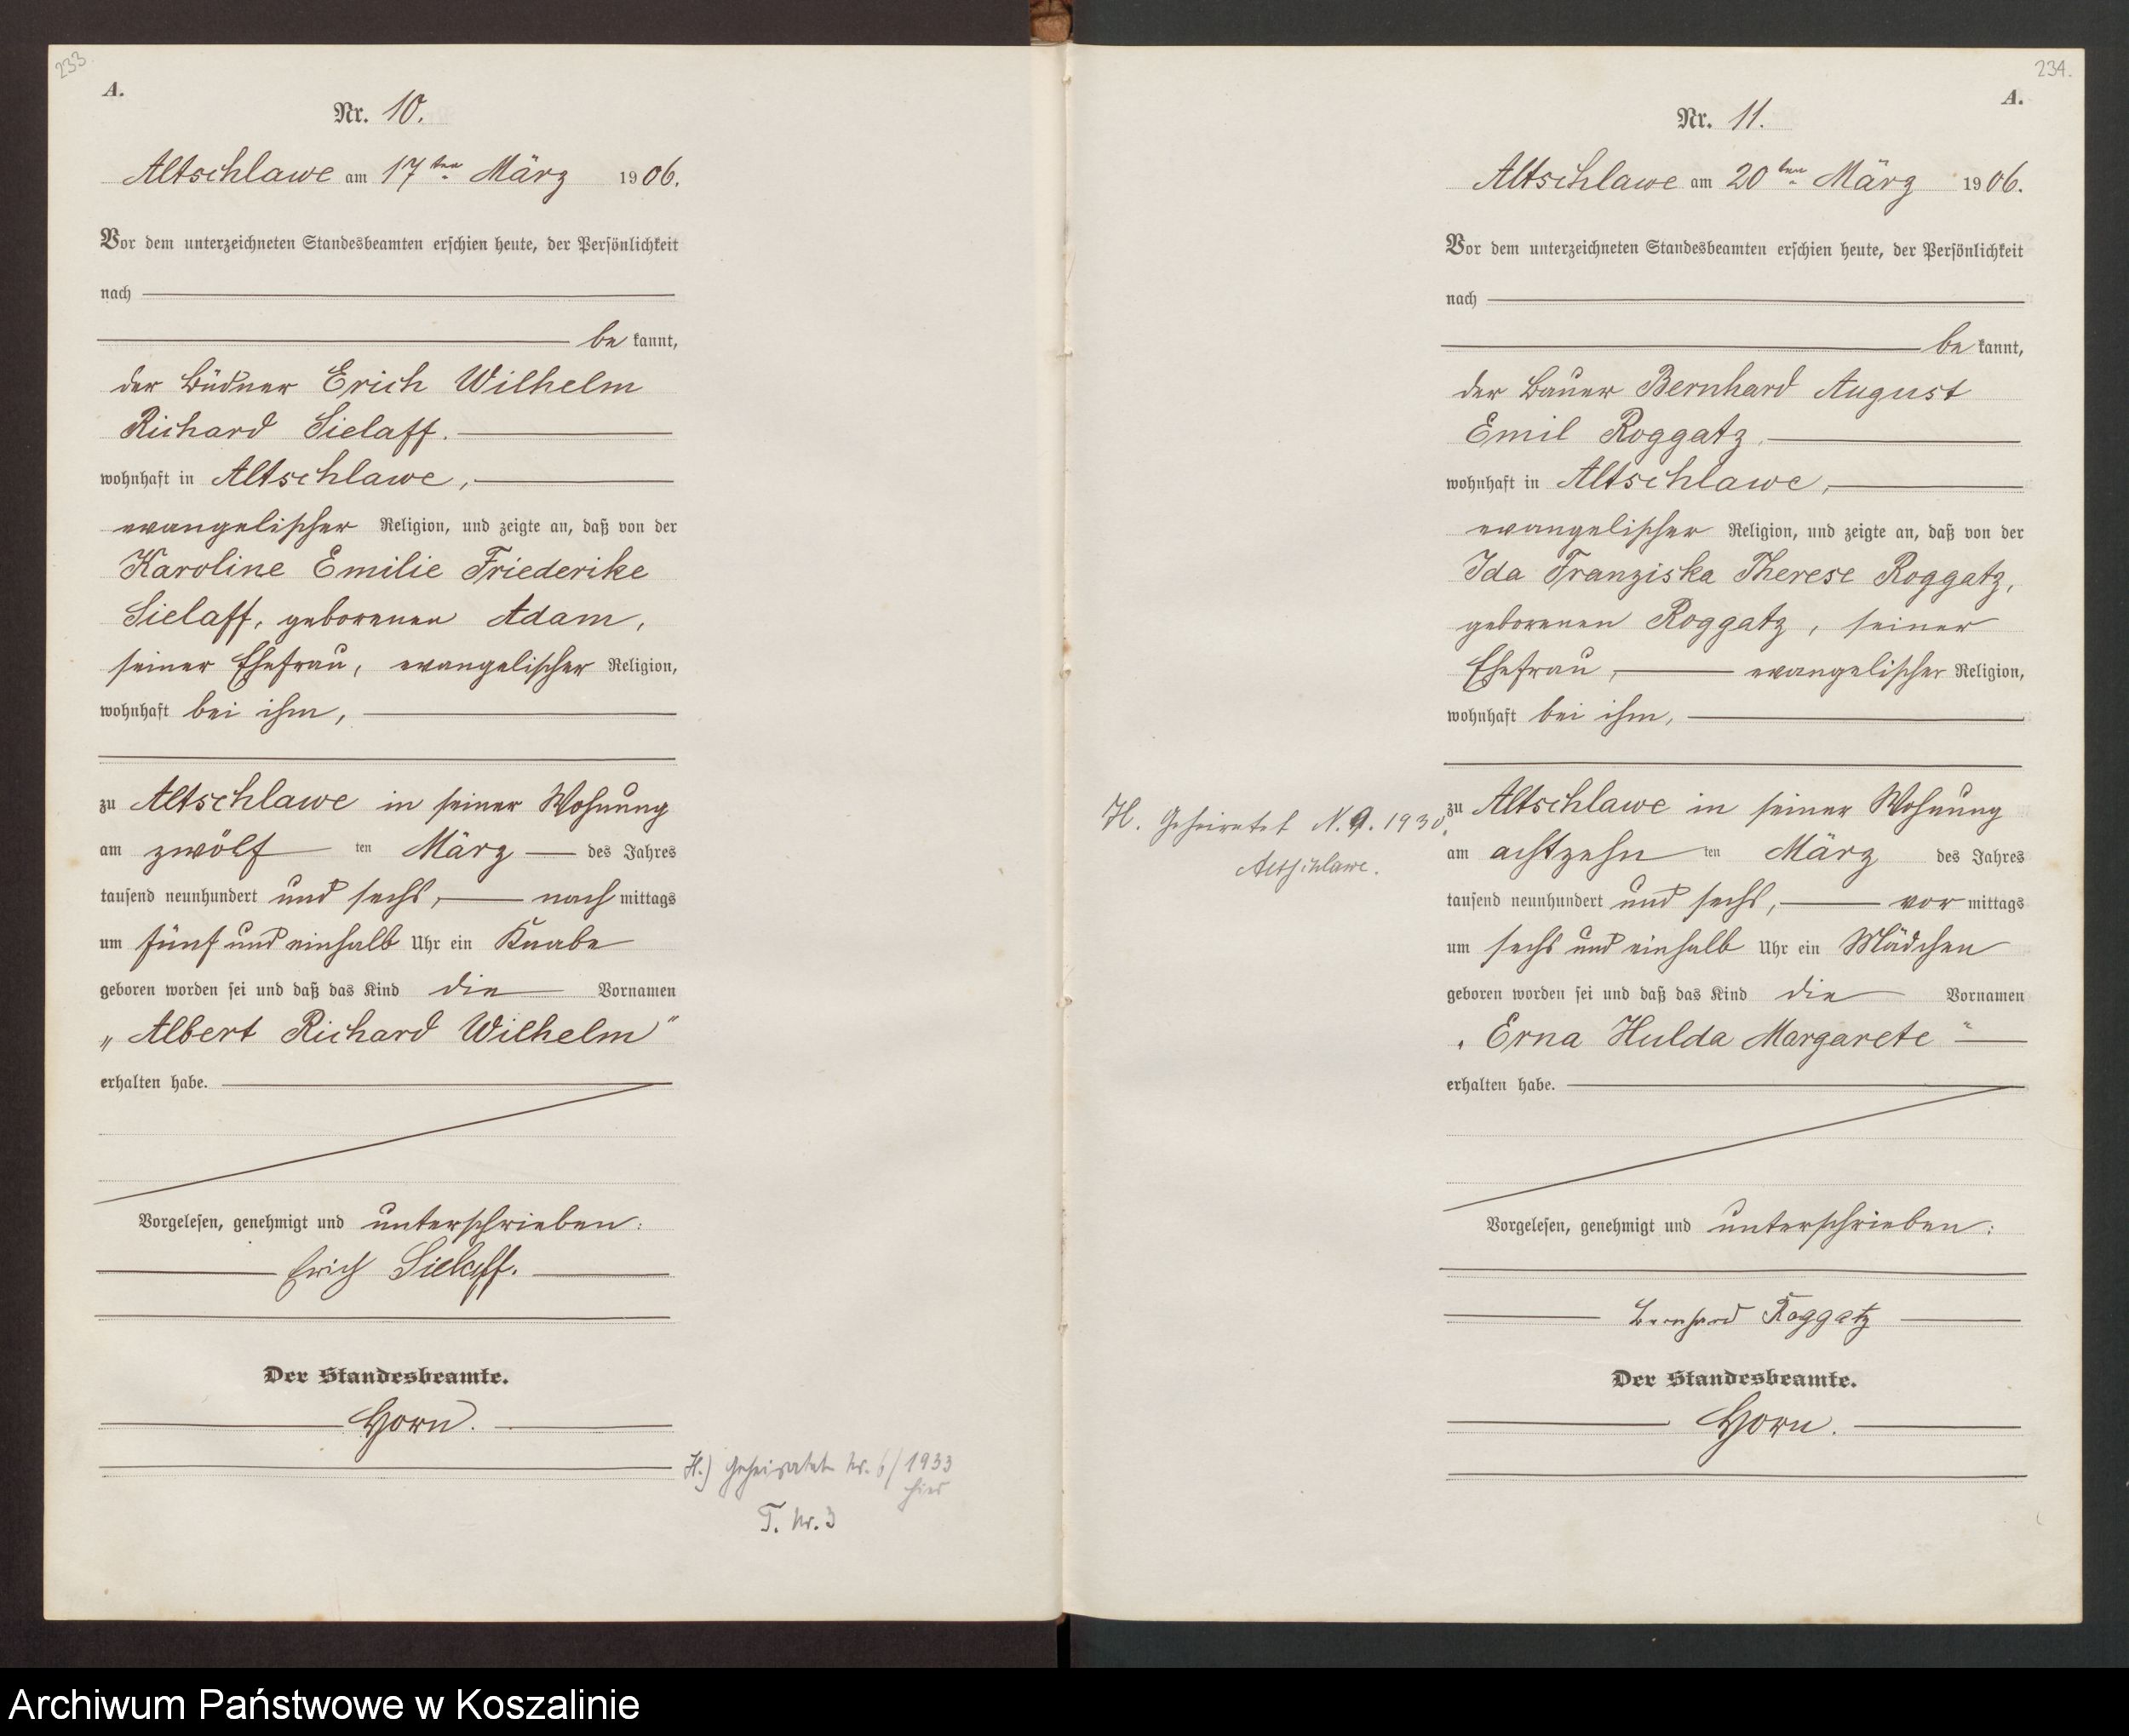 233.
A.
Nr. 10.
Altschlawe am 17ten März 1906.
Vor dem unterzeichneten Standesbeamten erschien heute, der Persönlichkeit
nach
be kannt,
der Büdner Erich Wilhelm
Richard Sielaff.
wohnhaft in Altschlawe,
evangelischer Religion, und zeigte an, daß von der
Karoline Emilie Friederike
Sielaff, geborenen Adam,
seiner Ehefrau, evangelischer Religion,
wohnhaft bei ihm,
zu Altschlawe in seiner Wohnung
am zwölf ten März des Jahres
tausend neunhundert und sechs, nach mittags
um fünf und einhalb Uhr ein Knabe
geboren worden sei und daß das Kind die Vornamen
„Albert Richard Wilhelm"
erhalten habe.
Vorgelesen, genehmigt und unterschrieben:
Erich Sielaff.
Der Standesbeamte.
Horn.
H.) Geheiratet Nr. 6/1933
hier
T. Nr. 3
234.
A.
Nr. 11.
Altschlawe am 20ten März 1906.
Vor dem unterzeichneten Standesbeamten erschien heute, der Persönlichkeit
nach
be kannt,
der Bauer Bernhard August
Emil Roggatz,
wohnhaft in Altschlawe,
evangelischer Religion, und zeigte an, daß von der
Ida Franziska Therese Roggatz,
geborenen Roggatz, seiner
Ehefrau, evangelischer Religion,
wohnhaft bei ihm,
zu Altschlawe in seiner Wohnung
am achtzehn ten März des Jahres
tausend neunhundert und sechs, vor mittags
um sechs und einhalb Uhr ein Mädchen
geboren worden sei und daß das Kind die Vornamen
„Erna Hulda Margarete"
erhalten habe.
Vorgelesen, genehmigt und unterschrieben:
Bernhard Roggatz
Der Standesbeamte.
Horn.
H. Geheiratet N. 9. 1930,
Altschlawe.
Archiwum Państwowe w Koszalinie